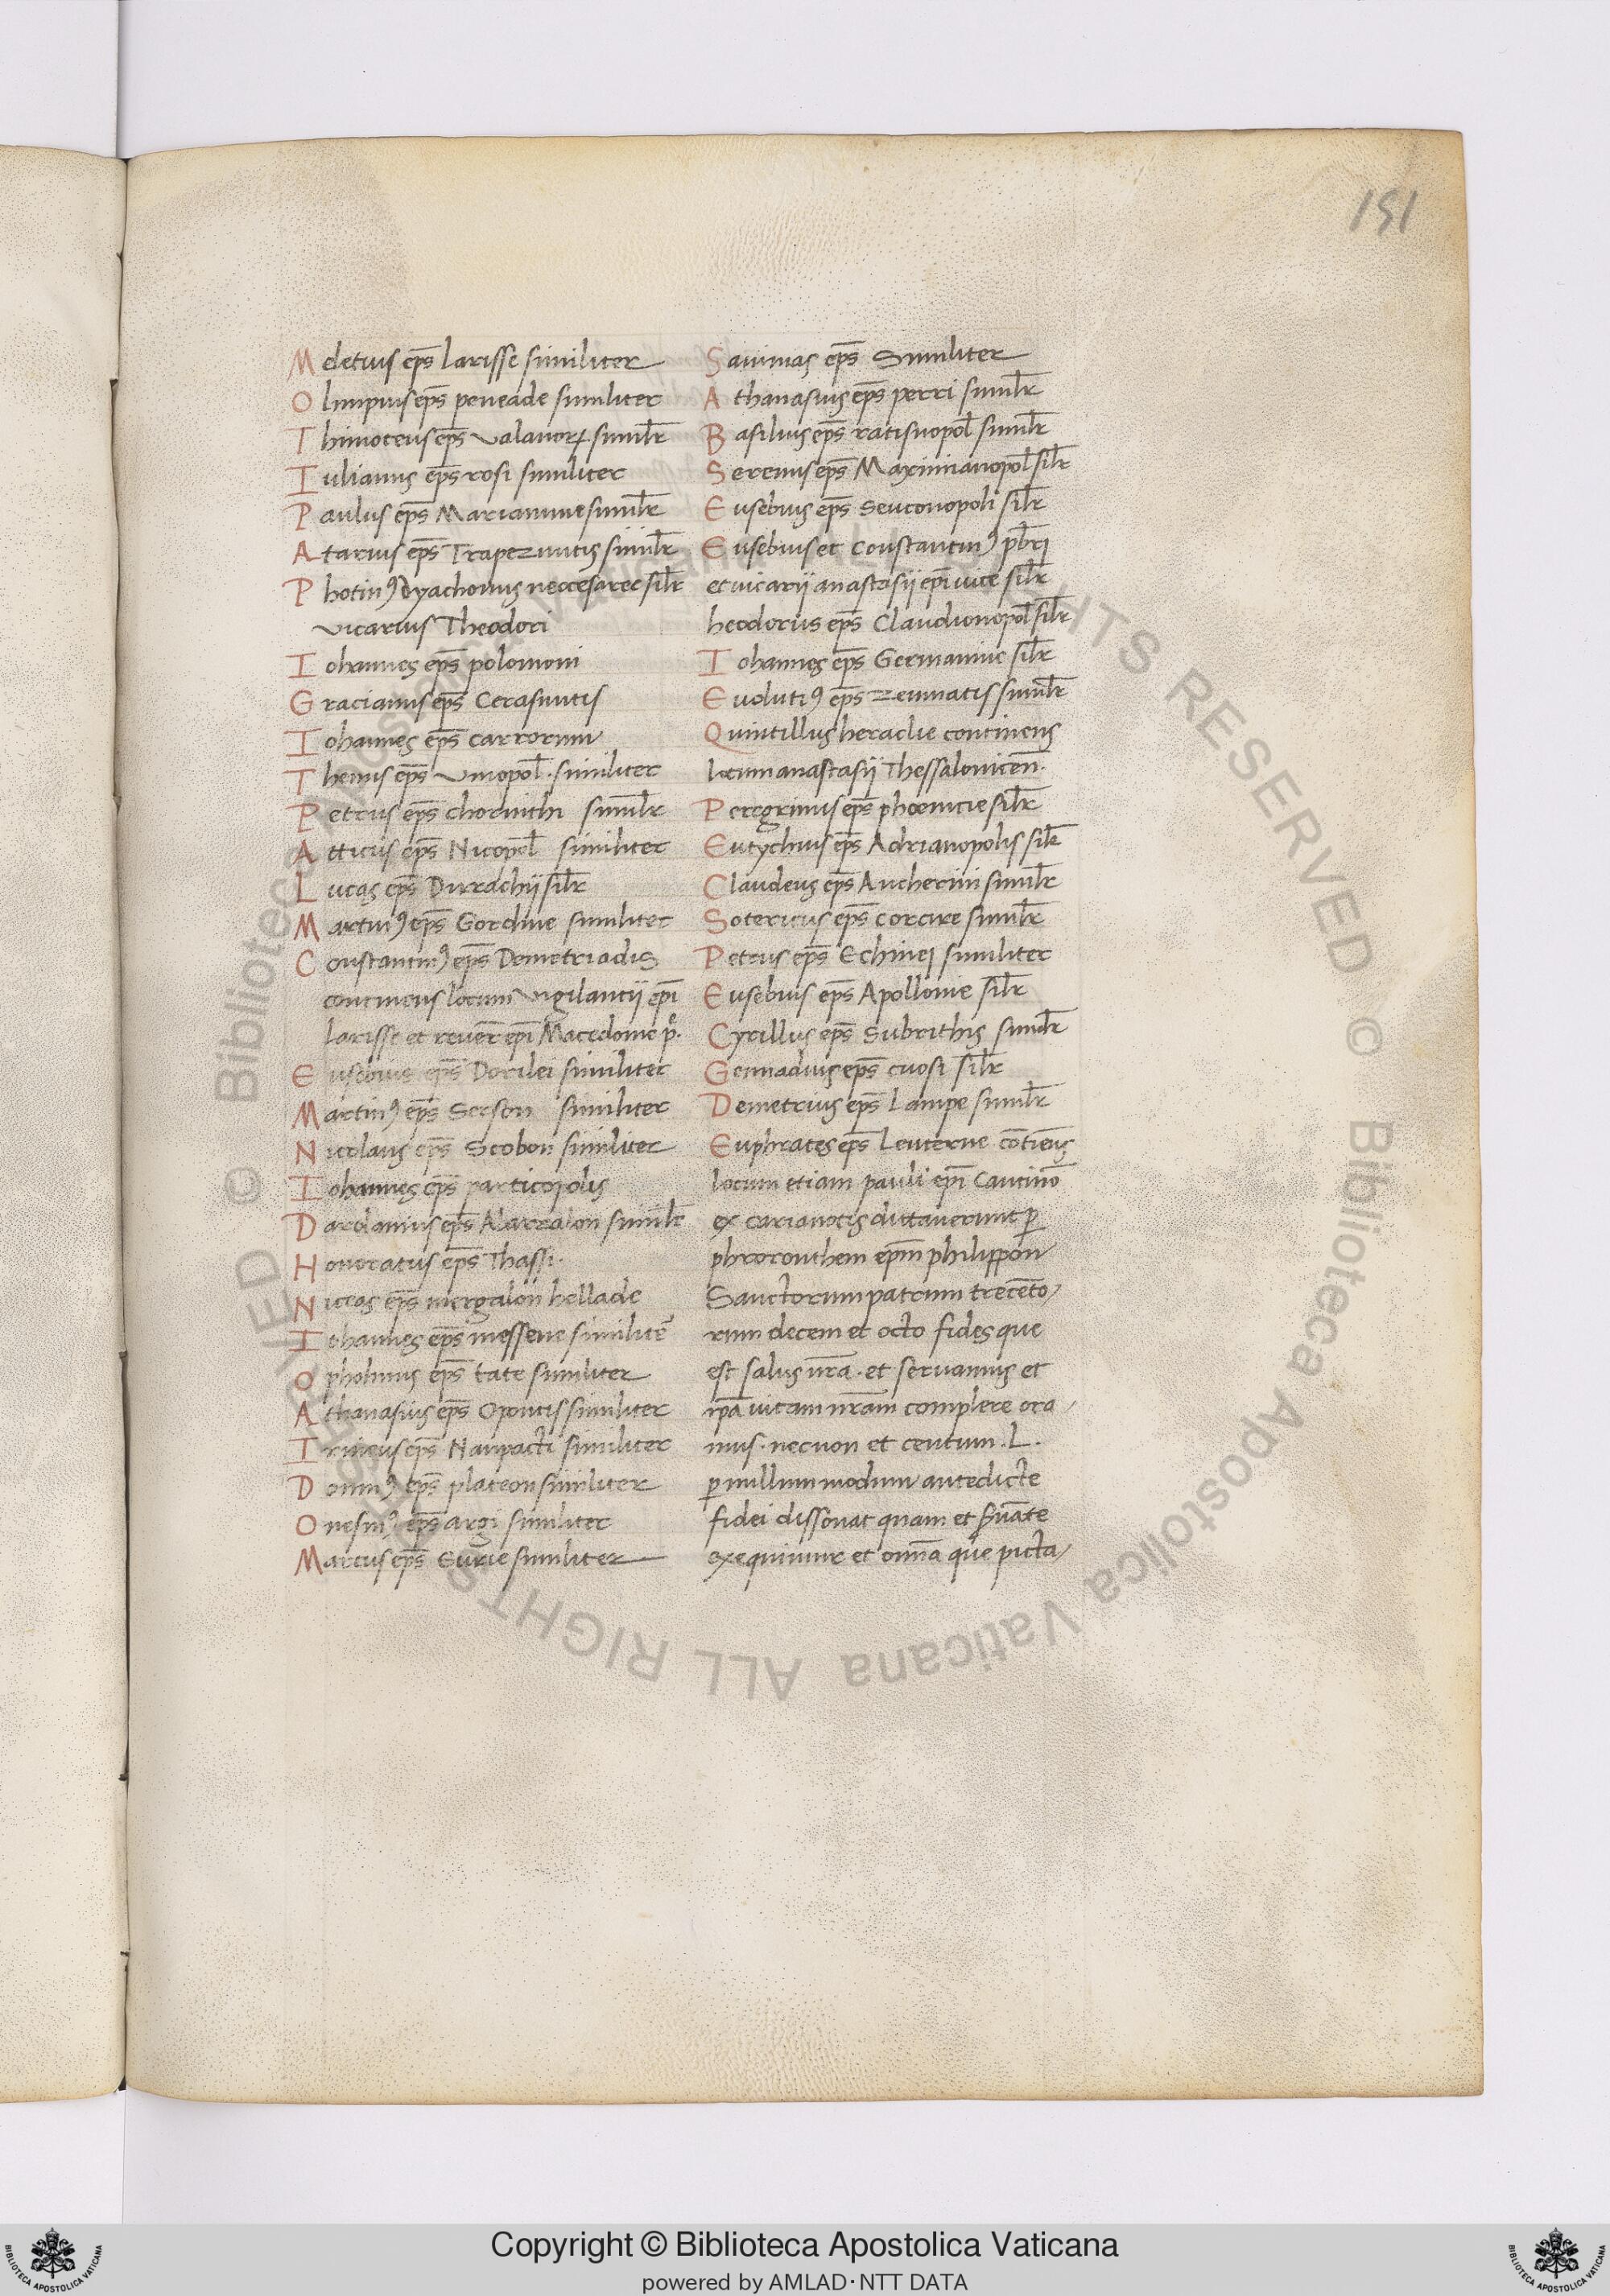 151
Meletius ep̅s larisse similiter
Olimpius ep̅s peneade similiter
Thimoteus ep̅s valanorꝝ simil̅r
Iulianus ep̅s rosi similiter
Paulus ep̅s Marianime simil̅r
Atarius ep̅s Trapezuntis simil̅r
Photinꝰ dyachonus neocesaree sil̅r
vicarius Theodori
Iohannes ep̅s polomoni
Gracianus ep̅s Cerasuntis
Iohannes ep̅s carrorum
Themis ep̅s vinopol̅. similiter
Petrus ep̅s chorinthi simil̅r
Atticus ep̅s Nicopol̅ similiter
Lucas ep̅s Durachij sil̅r
Martinꝰ ep̅s Gordine similiter
Constantinꝰ ep̅s Demetriadis
continens locum vigilantij ep̅i
larisse et rever̅ ep̅i Macedonie
Eusebius ep̅s Dorilei similiter
Martinꝰ ep̅s Serson similiter
Nicolaus ep̅s Scobon similiter
Iohannes ep̅s particopolis
Dardanius ep̅s simil̅r
Honoratus ep̅s Thassi.
Nicias ep̅s mergalon hellade
Iohannes ep̅s messene similit̅e
Opholimus ep̅s tate similiter
Athanasius ep̅s Opontis similiter
Irineus ep̅s Naupacti similiter
Domnꝰ ep̅s plateon similiter
Onesmꝰ ep̅s argi similiter
Marcus ep̅s Eurie similiter
Savimas ep̅s Similiter
Athanasius ep̅s perri simil̅r
Basilius ep̅s ratisnopol̅ simil̅r
Serenus ep̅s Maximianopol̅ sil̅r
Eusebius ep̅s Seuconopoli sil̅r
Eusebius et Constantinꝰ pb̅ri
et vicarij anastasij ep̅i vice sil̅r
heodorus ep̅s Claudionopol̅ sil̅r
Iohannes ep̅s Germanine sil̅r
Evolutiꝰ ep̅s zeumatis simil̅r
Quintillus heraclie continens
locum anastasij Thessalonicen̅.
Peregrinus ep̅s phoenicie sil̅r
Eutychius ep̅s Adrianopolis sil̅r
Claudeus ep̅s Ancherini simil̅r
Sotericus ep̅s corcire simil̅r
Petrus ep̅s Echinej similiter
Eusebius ep̅s Apollonie sil̅r
Cyrillus ep̅s Subrithis simil̅r
Gennadius ep̅s cuosi sil̅r
Demetrius ep̅s Lampe simil̅r
Euphrates ep̅s Leuterne co̅tine̅s
locum etiam pauli ep̅i Cantino̅
ex carianotis dictaverunt ꝑ
phroronthem ep̅m philippon
Sanctorum patrum trece̅to/
rum decem et octo fides que
est salus nr̅a. et servamus et
ip̅a vitam nr̅am complere ora/
mus. necnon et centum .L.
ꝑ nullum modum antedicte
fidei dissonat quam et
exequimur et omn̅a que picta/
Copyright © Biblioteca Apostolica Vaticana
powered by AMLAD·NTT DATA
BIBLIOTECA APOSTOLICA VATICANA
BIBLIOTECA APOSTOLICA VATICANA
© Biblioteca Apostolica Vaticana ALL RIGHTS RESERVED © Biblioteca Apostolica Vaticana ALL RIGHTS RESERVED